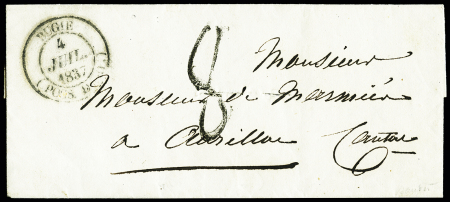 BUGIE
4
JUIL.
1837
(POSS. 
8
Monsieur
Monsieur de Marmier
a Aurillac Cantal